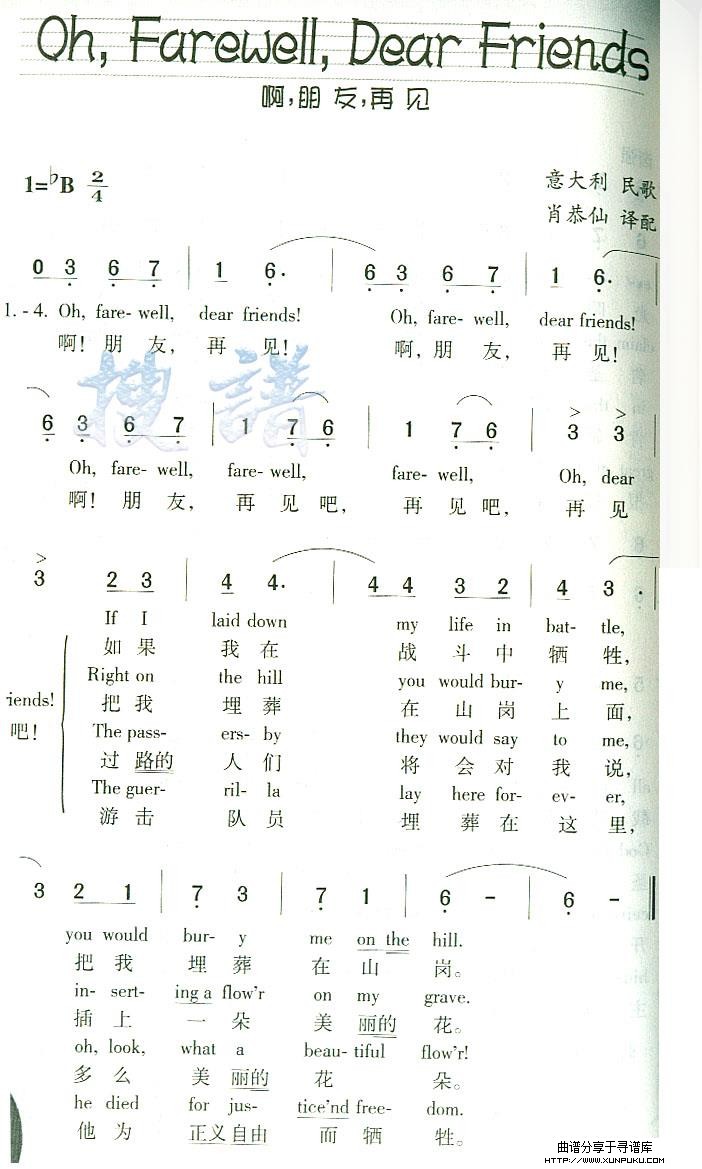 Oh, Farewell, Dear Friends
啊,朋友,再见
1=♭B 2/4
意大利 民歌
肖恭仙 译配
0 3 6 7 | 1 6· | 6 3 6 7 | 1 6· |
1.-4. Oh, fare- well, dear friends! Oh, fare- well, dear friends!
啊! 朋 友, 再 见! 啊, 朋 友, 再 见!
搜谱
6 3 6 7 | 1 7 6 | 1 7 6 | 3 3 |
Oh, fare- well, fare- well, fare- well, Oh, dear
啊! 朋 友, 再 见 吧, 再 见 吧, 再 见
3 2 3 | 4 4· | 4 4 3 2 | 4 3 ·|
If I laid down my life in bat- tle,
如 果 我 在 战 斗 中 牺 牲,
Right on the hill you would bur- y me,
iends!
把 我 埋 葬 在 山 岗 上 面,
吧!
The pass- ers- by they would say to me,
过 路的 人 们 将 会 对 我 说,
The guer- ril- la lay here for- ev- er,
游 击 队 员 埋 葬 在 这 里,
3 2 1 | 7 3 | 7 1 | 6 - | 6 - ‖
you would bur- y me on the hill.
把 我 埋 葬 在 山 岗。
in- sert- ing a flow'r on my grave.
插 上 一 朵 美 丽的 花。
oh, look, what a beau- tiful flow'r!
多 么 美 丽的 花 朵。
he died for jus- tice'nd free- dom.
他 为 正义自由 而 牺 牲。
曲谱分享于寻谱库
HTTP://WWW.XUNPUKU.COM